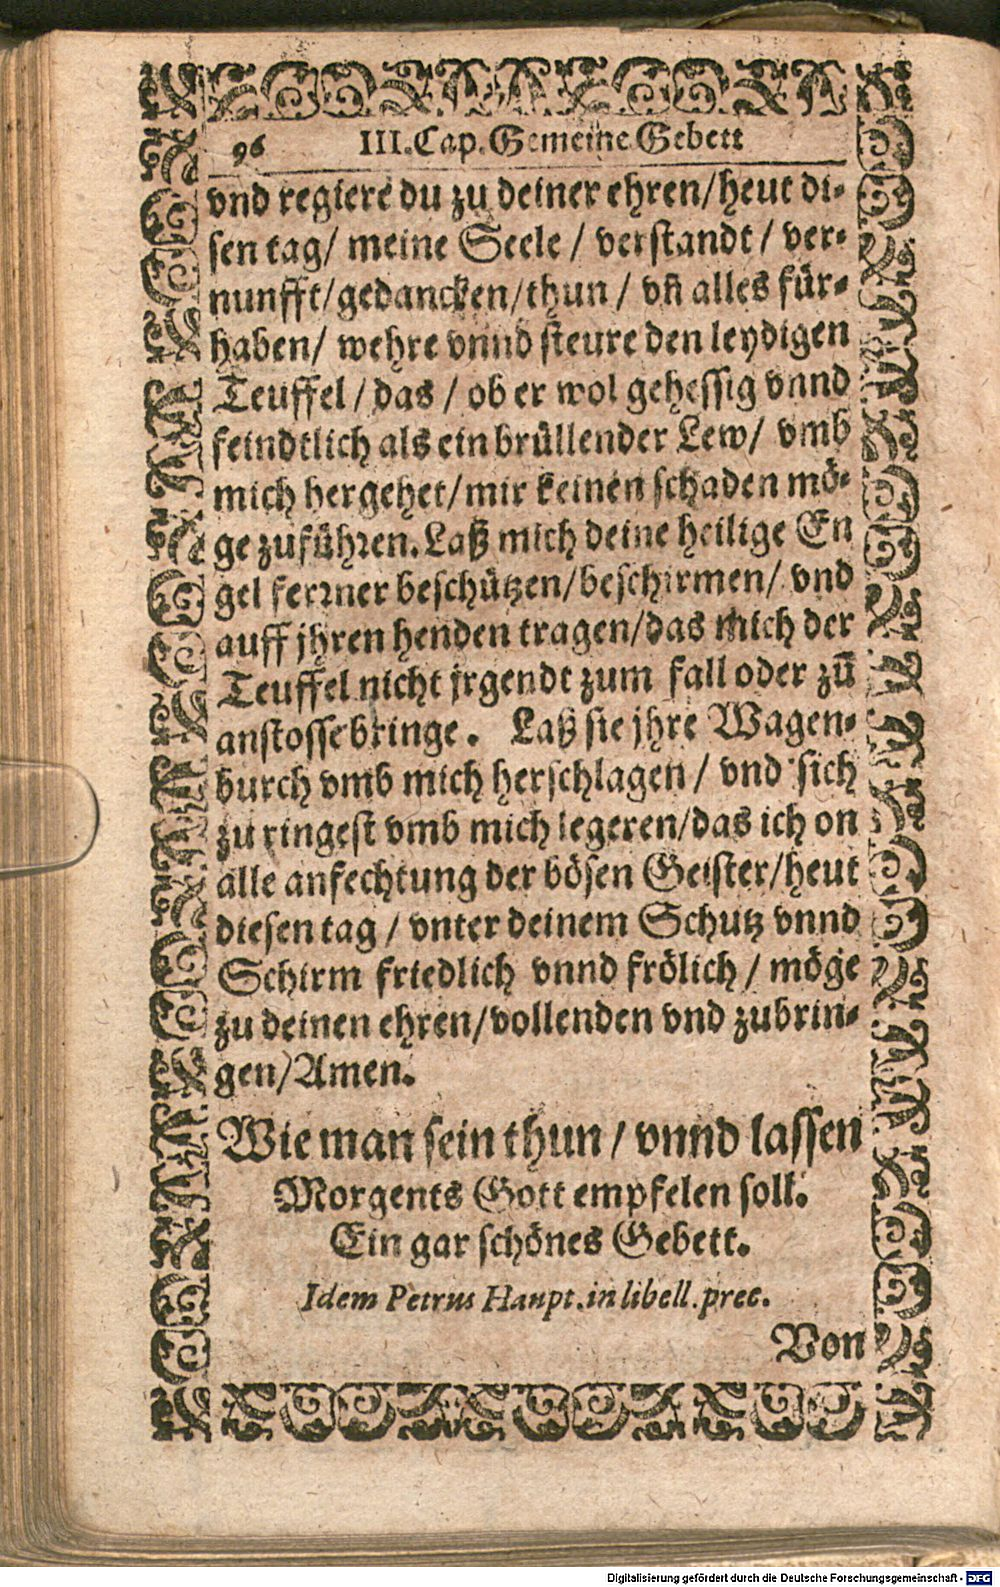 96 III. Cap. Gemeine Gebett
vnd regiere du zu deiner ehren/ heut di-
sen tag/ meine Seele / verstandt / ver-
nunfft/ gedancken/ thun / vñ alles für-
haben/ wehre vnnd steure den leydigen
Teuffel / das / ob er wol gehessig vnnd
feindtlich als ein brüllender Lew/ vmb
mich hergehet/ mir keinen schaden mö-
ge zuführen. Laß mich deine heilige En
gel ferrner beschützen/ beschirmen/ vnd
auff jhren henden tragen/ das mich der
Teuffel nicht jrgendt zum fall oder zū
anstosse bringe. Laß sie jhre Wagen-
burch vmb mich herschlagen / vnd sich
zu ringest vmb mich legeren/ das ich on
alle anfechtung der bösen Geister/ heut
diesen tag / vnter deinem Schutz vnnd
Schirm friedlich vnnd frölich / möge
zu deinen ehren/ vollenden vnd zubrin-
gen/ Amen.
Wie man sein thun / vnnd lassen
Morgents Gott empfelen soll.
Ein gar schönes Gebett.
Idem Petrus Haupt. in libell. prec.
Von
Digitalisierung gefördert durch die Deutsche Forschungsgemeinschaft - DFG